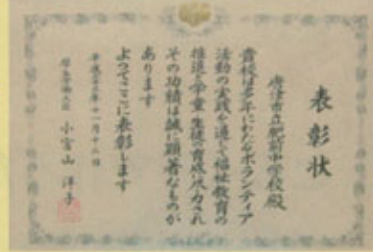 表彰状
唐津市立肥前中学校殿
貴校は多年にわたりボランティア
活動の実践を通じて福祉教育の
推進と学童・生徒の育成に尽力され
その功績は誠に顕著なものが
あります
よってここに表彰します
平成二十三年十一月十八日
厚生労働大臣 小宮山洋子